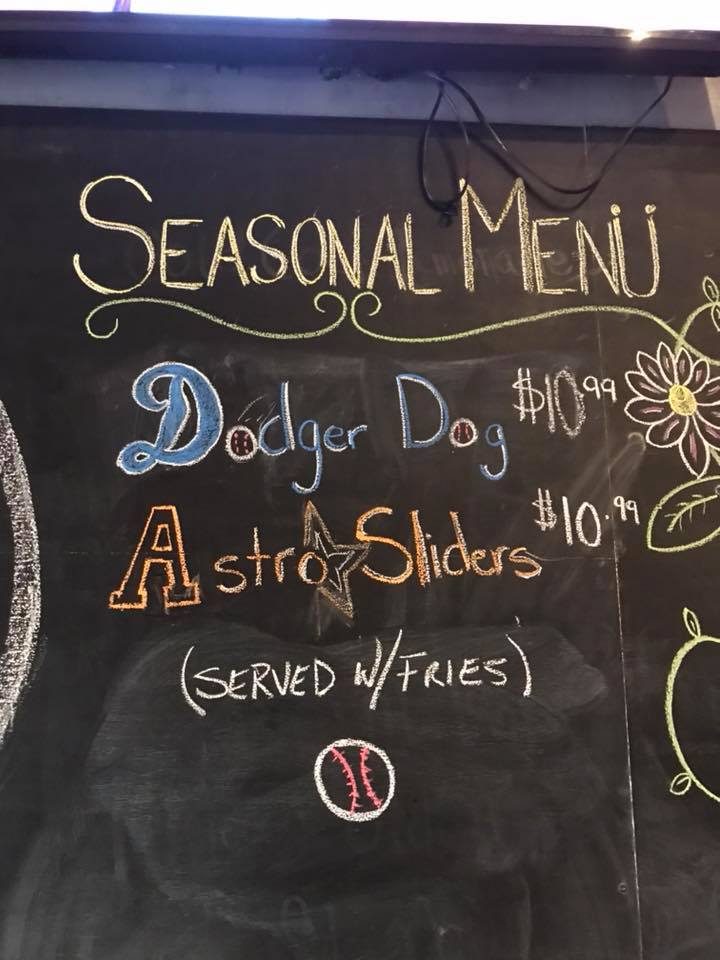 SEASONAL MENÜ
Dodger Dog $10.99
Astro Sliders $10.99
(SERVED W/FRIES)